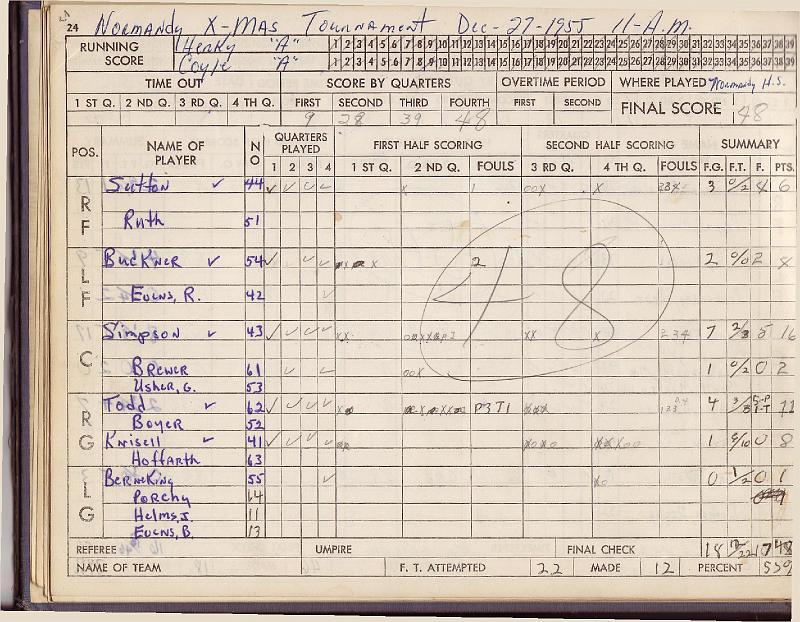 24 Normandy X-mas Tournament Dec-27-1955 11-A.M.
RUNNING SCORE
Henky "A" 1 2 3 4 5 6 7 8 9 10 11 12 13 14 15 16 17 18 19 20 21 22 23 24 25 26 27 28 29 30 31 32 33 34 35 36 37 38 39
Coyle "A" 1 2 3 4 5 6 7 8 9 10 11 12 13 14 15 16 17 18 19 20 21 22 23 24 25 26 27 28 29 30 31 32 33 34 35 36 37 38 39
TIME OUT SCORE BY QUARTERS OVERTIME PERIOD WHERE PLAYED Normandy H.S.
1 ST Q. 2 ND Q. 3 RD Q. 4 TH Q. FIRST SECOND THIRD FOURTH FIRST SECOND FINAL SCORE 48
9 28 39 48
POS. NAME OF PLAYER NO QUARTERS PLAYED FIRST HALF SCORING SECOND HALF SCORING SUMMARY
1 2 3 4 1 ST Q. 2 ND Q. FOULS 3 RD Q. 4 TH Q. FOULS F.G. F.T. F. PTS.
RF Sutton ✓ 44 ✓ ✓ ✓ ✓ x 1 00x x 234 3 0/2 4 6
Ruth 51
LF Buckner ✓ 54 ✓ ✓ ✓ x 2 2 0/0 2
Evens, R. 42 ✓
48
C Simpson ✓ 43 ✓ ✓ ✓ ✓ xx xx x 234 7 2/3 5 16
Brewer 61 ✓ ✓ 00x 1 0/2 0 2
Usher, G. 53
RG Todd ✓ 62 ✓ ✓ ✓ ✓ P3 T1 4 3/3 5-P 1-T 11
Boyer 52
Knisell ✓ 41 ✓ ✓ ✓ ✓ 1 6/10 0 8
Hoffarth 63
LG Berneking 55 ✓ x0 0 1/2 0 1
Porchy 14
Helms, J. 11
Evens, B. 13
REFEREE UMPIRE FINAL CHECK 18 12/22 17 48
NAME OF TEAM F. T. ATTEMPTED 22 MADE 12 PERCENT 559